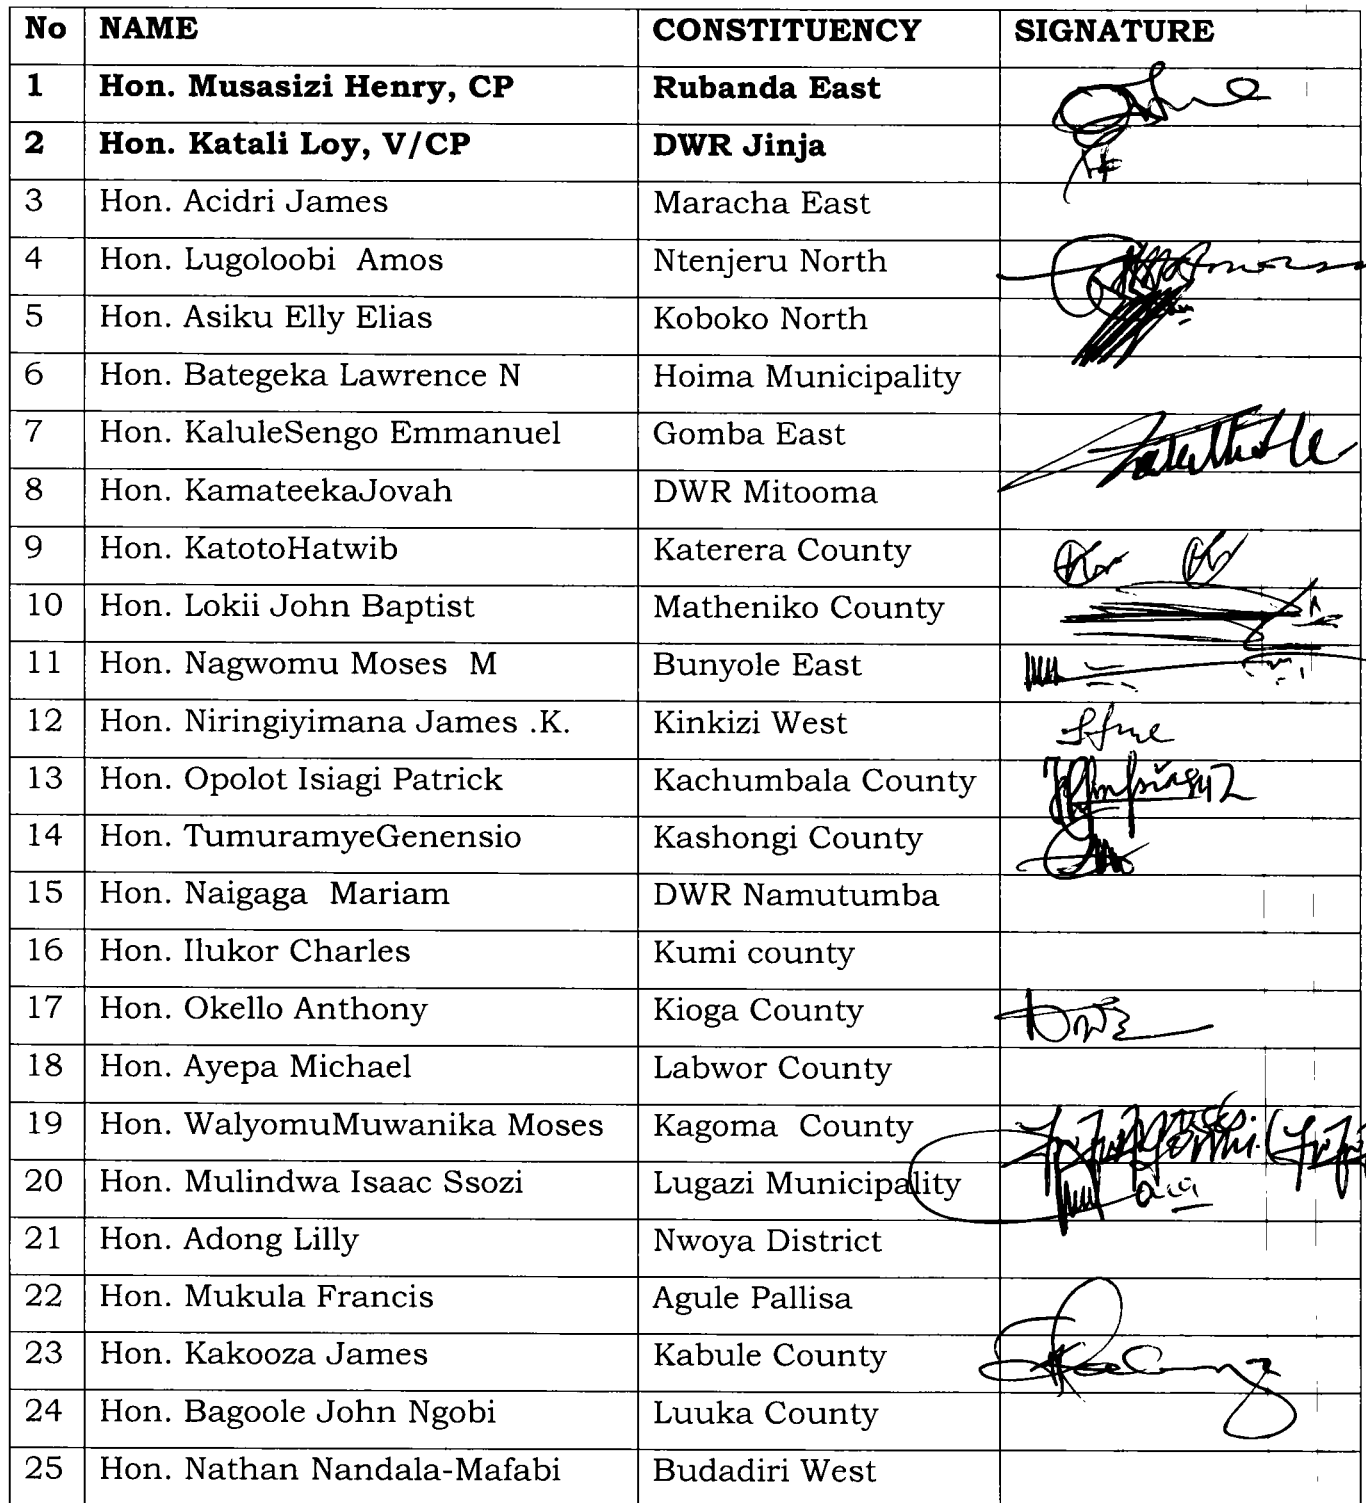 No NAME CONSTITUENCY SIGNATURE
1 Hon. Musasizi Henry, CP Rubanda East
2 Hon. Katali Loy, V/CP DWR Jinja
3 Hon. Acidri James Maracha East
4 Hon. Lugoloobi Amos Ntenjeru North
5 Hon. Asiku Elly Elias Koboko North
6 Hon. Bategeka Lawrence N Hoima Municipality
7 Hon. KaluleSengo Emmanuel Gomba East
8 Hon. KamateekaJovah DWR Mitooma
9 Hon. KatotoHatwib Katerera County
10 Hon. Lokii John Baptist Matheniko County
11 Hon. Nagwomu Moses M Bunyole East
12 Hon. Niringiyimana James .K. Kinkizi West
13 Hon. Opolot Isiagi Patrick Kachumbala County
14 Hon. TumuramyeGenensio Kashongi County
15 Hon. Naigaga Mariam DWR Namutumba
16 Hon. Ilukor Charles Kumi county
17 Hon. Okello Anthony Kioga County
18 Hon. Ayepa Michael Labwor County
19 Hon. WalyomuMuwanika Moses Kagoma County
20 Hon. Mulindwa Isaac Ssozi Lugazi Municipality
21 Hon. Adong Lilly Nwoya District
22 Hon. Mukula Francis Agule Pallisa
23 Hon. Kakooza James Kabule County
24 Hon. Bagoole John Ngobi Luuka County
25 Hon. Nathan Nandala-Mafabi Budadiri West